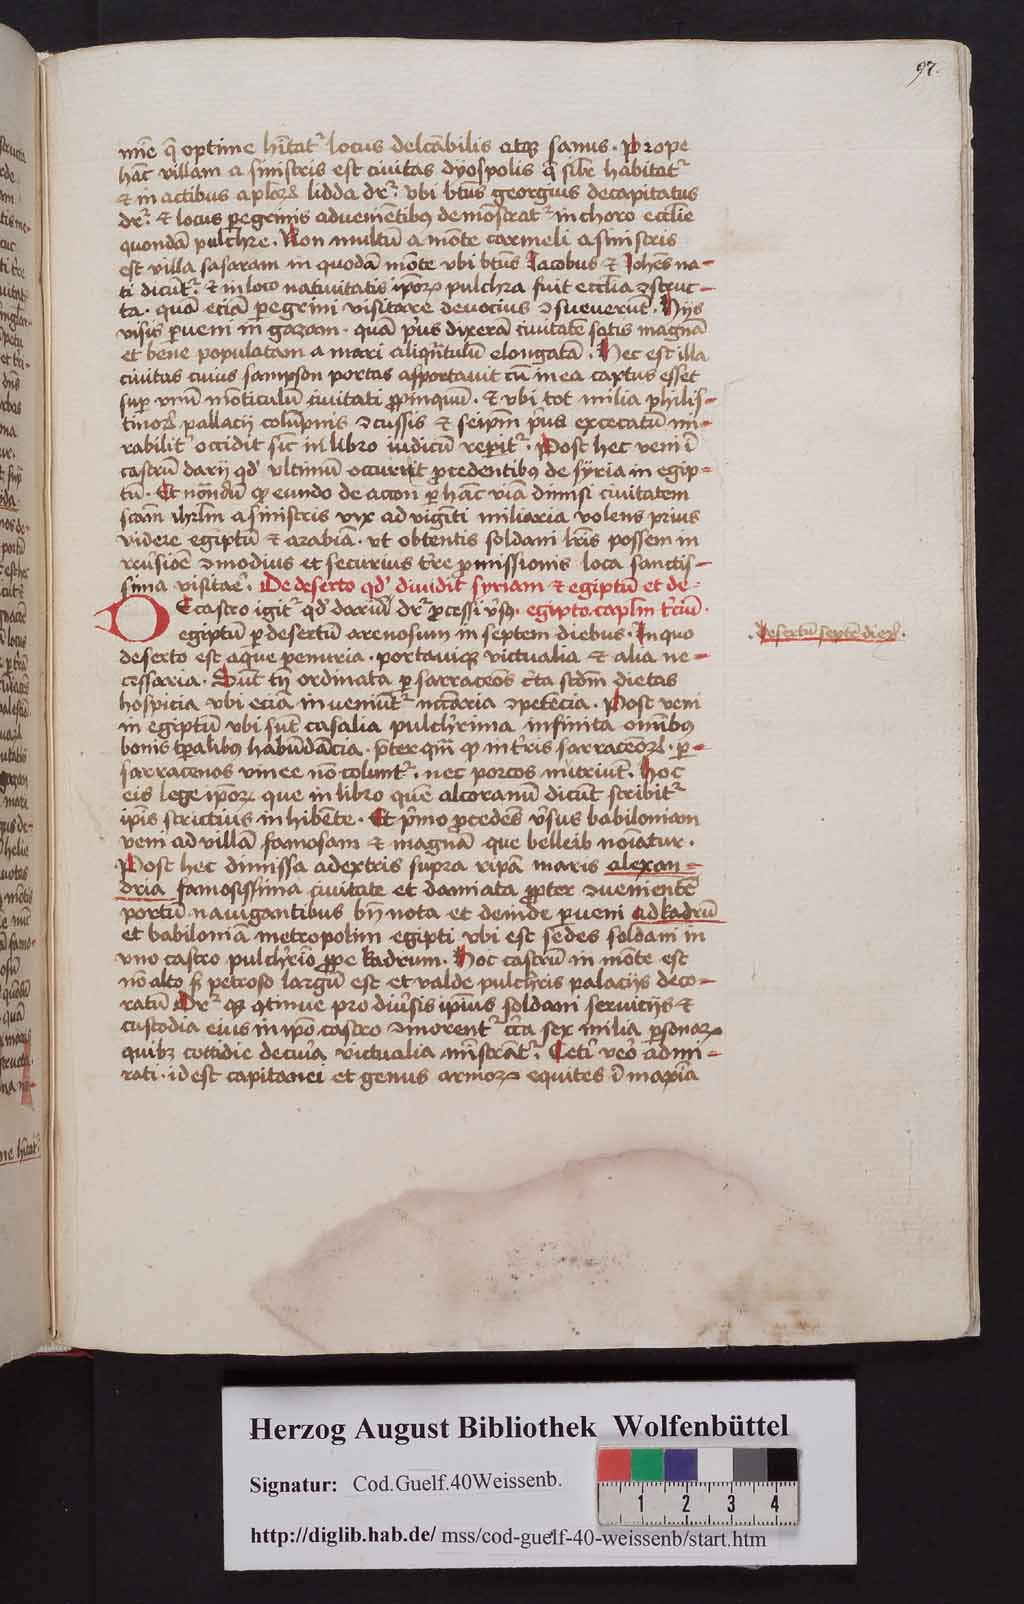 97.
mīe q̄ optime hītat᷑ locus delcābilis atqꝫ sanus · Prope
hāc villam a sinistris est ciuitas dyospolis q̄ sībr habitat᷑
⁊ in actibus aplor̄ lidda dr᷑ · vbi btūs georgius decapitatus
dr᷑ · ⁊ locus peregrinis adueniētibꝰ demōstrat᷑ in choro ecclīe
quondā pulchre · Non multū a mōte carmeli a sinistris
est villa sasaram in quodā mōte vbi btūs Jacobus ⁊ Johēs na-
ti dicūt᷑ · ⁊ in loco natiuitatis ip̄oꝝ pulchra fuit ecclīa ꝯstruc-
ta · quā eciā peregrini visitare deuocius ꝯsueuerūt · Hijs
visis perueni in gazam · quā pͥus dixerā ciuitatē satis magnā
et bene populatam a mari aliqn̄tulū elongatā · Hec est illa
ciuitas cuius sampson portas asportauit cū in ea captus esset
sup vnū mōticulū ciuitati ꝓpinquū · ⁊ vbi tot milia philis-
tinoꝝ pallacij colūpnis ꝯcussis ⁊ seip̄m pͥus excecatū mi-
rabilit᷑ occidit sic in libro iudicū reperit᷑ · Post hec veni ī
castrū darij qd̕ vltimū occurrit ꝓcedentibꝰ de syria in egip-
tū · Et nōndū ꝙ eundo de accon ꝑ hāc viā dimisi ciuitatem
scām ihrlm̄ a sinistris vix ad viginti miliaria volens prius
videre egiptū ⁊ arabiā · vt obtentis soldani lr̄is possem in
reūsiōe ꝯmodius et securius tr̄re ꝓmissionis loca sanctis-
sima visitar̄e · De deserto qd̕ diuidit syriam ⁊ egiptū et de
DE castro igit᷑ qd̕ dariū dr᷑ ꝓcessi v̄sꝫ · egipto · caplm̄ tr̄ciū ·
egiptū ꝑ desertū arenosum in septem diebus · In quo
· Desertū septē dieꝝ ·
deserto est aque penuria · portauiqꝫ victualia ⁊ alia ne-
cessaria · Sūt tn̄ ordinata ꝑ sarracēos cīta scdm̄ dietas
hospicia vbi eciā inueniūt᷑ nc̄caria ꝯpetēcia · Post veni
in egiptū vbi sūt casalia pulchͥrima infinita omībꝰ
bonis tp̄alibꝰ habūdācia · p̄ter qm̄ ꝙ in tr̄ris sarracēoꝝ · ꝑ-
sarracenos vinee nō colunt᷑ · nec porcos nutriūt · Hoc
eis lege ip̄oꝝ que in libro quē alcoranū dicūt scribit᷑
ip̄is strictius inhibente · Et pͥmo ꝓcedēs v̄sus babiloniam
veni ad villā famosam ⁊ magnā que belleib noīatur ·
Post hec dimissa adextris supra ripā maris alexan-
dria famosissima ciuitate et damiata ꝓpter ꝯueniente
portū nauigantibus bn̄ nota et deinde perueni ad kadrū
et babiloniā metropolim egipti vbi est sedes soldani in
vno castro pulchͥrio ꝓpe kadrum · Hoc castrū in mōte est
nō alto sꝫ petroso largū est et valde pulchris palacijs deco-
ratū Dr᷑ ꝙ qtinue pro diūsis ip̄ius soldani seruicijs ⁊
custodia eius in ip̄o castro ꝯmorent᷑ cͥca sex milia ꝑsonaꝝ
quibꝫ cottidie de cuͥa victualia mīstrāt᷑ · Ceti v̄o admi-
rati · id est capitanei et genus armoꝝ equites ī maxīa
Herzog August Bibliothek Wolfenbüttel
Signatur: Cod.Guelf.40Weissenb.
1 2 3 4
http://diglib.hab.de/ mss/cod-guelf-40-weissenb/start.htm